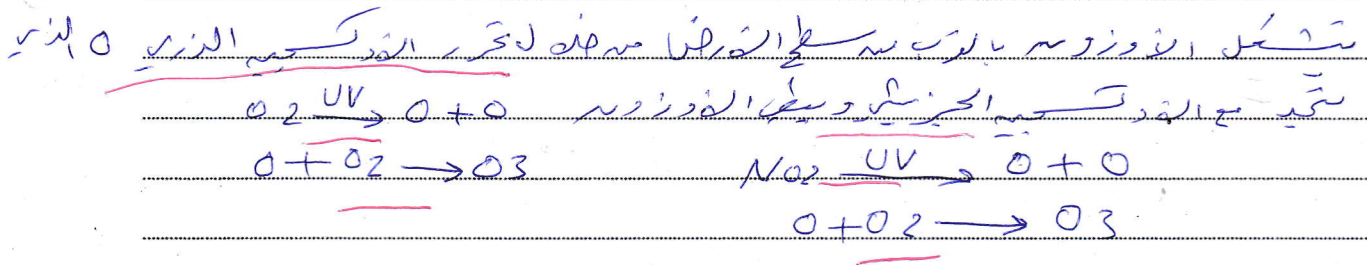 تتشكل الأوزون بالقرب من سطح الأرض من خلال تحرر الأوكسجين الذري O الذي
يتحد مع الأوكسجين الجزيئي ويعطي الأوزون O2 UV→ O + O
O + O2 → O3 NO2 UV→ O + O
O + O2 → O3